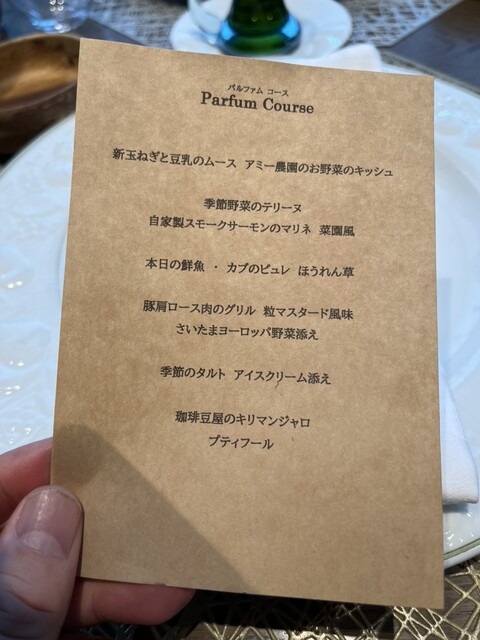 パルファム コース
Parfum Course
新玉ねぎと豆乳のムース アミー農園のお野菜のキッシュ
季節野菜のテリーヌ
自家製スモークサーモンのマリネ 菜園風
本日の鮮魚 ・ カブのピュレ ほうれん草
豚肩ロース肉のグリル 粒マスタード風味
さいたまヨーロッパ野菜添え
季節のタルト アイスクリーム添え
珈琲豆屋のキリマンジャロ
プティフール